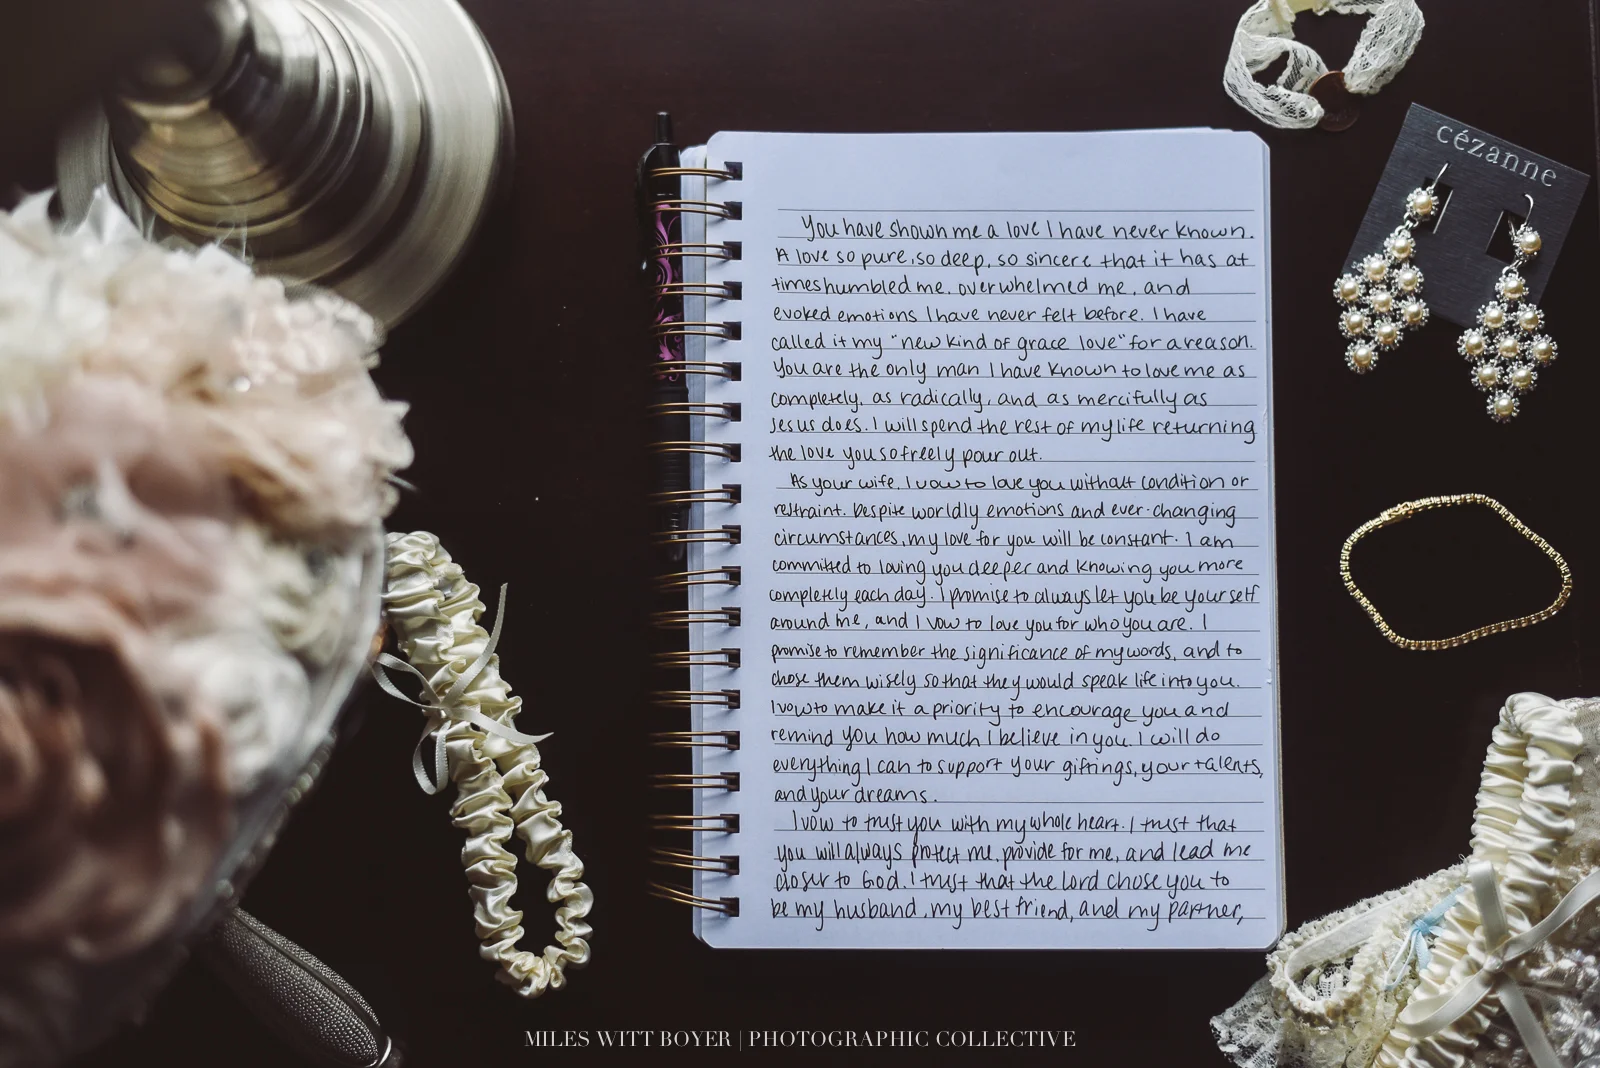 cézanne
You have shown me a love I have never known.
A love so pure, so deep, so sincere that it has at
times humbled me, overwhelmed me, and
evoked emotions I have never felt before. I have
called it my "new kind of grace love" for a reason.
You are the only man I have known to love me as
completely, as radically, and as mercifully as
Jesus does. I will spend the rest of my life returning
the love you so freely pour out.
As your wife, I vow to love you without condition or
restraint. Despite worldly emotions and ever-changing
circumstances, my love for you will be constant. I am
committed to loving you deeper and knowing you more
completely each day. I promise to always let you be yourself
around me, and I vow to love you for who you are. I
promise to remember the significance of my words, and to
chose them wisely so that they would speak life into you.
I vow to make it a priority to encourage you and
remind you how much I believe in you. I will do
everything I can to support your giftings, your talents,
and your dreams.
I vow to trust you with my whole heart. I trust that
you will always protect me, provide for me, and lead me
closer to God. I trust that the Lord chose you to
be my husband, my best friend, and my partner,
MILES WITT BOYER | PHOTOGRAPHIC COLLECTIVE